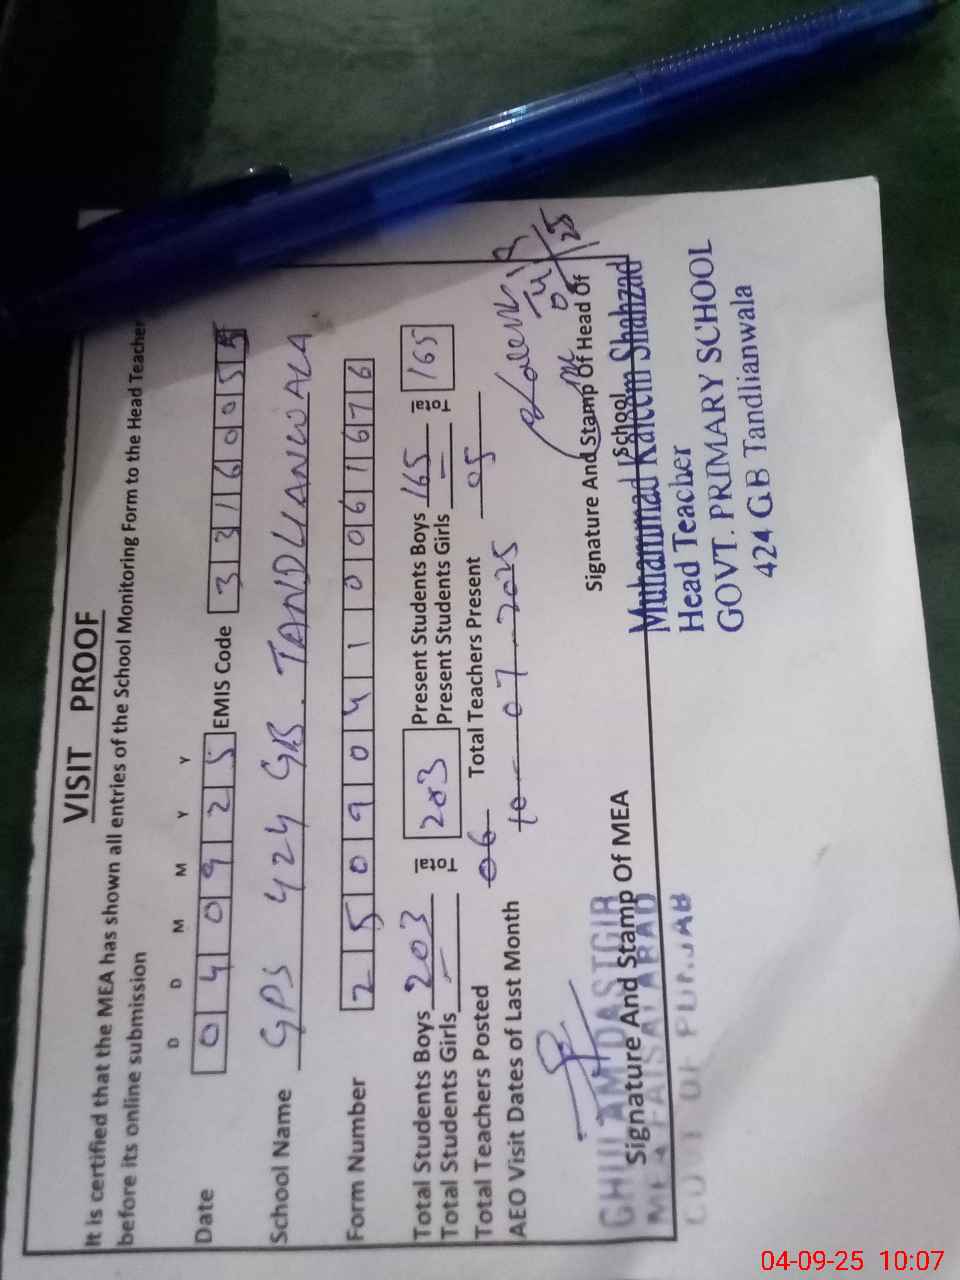 VISIT PROOF
It is certified that the MEA has shown all entries of the School Monitoring Form to the Head Teacher
before its online submission
D D M M Y Y
Date 0 4 0 9 2 5 EMIS Code 3 3 1 6 0 0 5
School Name GPS 424 GB. TANDLIANWALA
Form Number 2 5 0 9 0 4 1 0 0 6 1 6 7 6
Total Students Boys 203 Total 203 Present Students Boys 165 Total 165
Total Students Girls – Present Students Girls –
Total Teachers Posted 06 Total Teachers Present 05
AEO Visit Dates of Last Month 07-2025
Kaleem
04 09 25
Signature And Stamp Of MEA
GHULAM DASTGIR
MEA FAISALABAD
GOVT OF PUNJAB
Signature And Stamp Of Head Of
School
Muhammad Kaleem Shahzad
Head Teacher
GOVT. PRIMARY SCHOOL
424 GB Tandlianwala
04-09-25 10:07